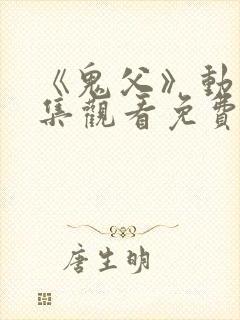 《鬼父》動
集觀看免費
唐生明